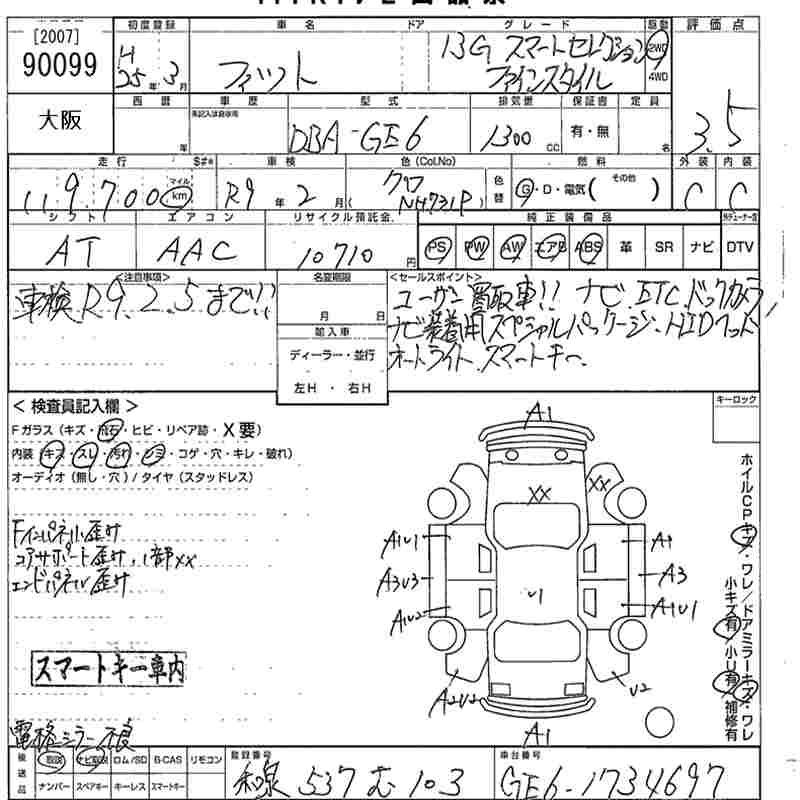 [2007]
90099
初度登録 車名 ドア グレード 駆動 評価点
H 25年 3月 フィット 13G スマートセレクション 2WD
ファインスタイル 4WD
大阪
西暦 車歴 型式 排気量 保証書 定員
未記入は自家用
年 DBA-GE6 1300 CC 有・無 名 3.5
走行 S#* 車検 色(Col.No) 燃料 外装 内装
119,700 マイル km R9年 2月 クロ NH731P 色替 G・D・電気( その他 ) C C
シフト エアコン リサイクル預託金 純正装備品
AT AAC 10710円 PS PW AW エアB ABS 革 SR ナビ DTV
<注意事項> 名変期限 <セールスポイント>
車検R9.2.5まで!! 月 日 ユーザー買取車!! ナビ.ETC.ドックカメラ,
輸入車 ナビ装着用スペシャルパッケージ.HIDヘッド
ディーラー・並行 オートライト.スマートキー.
左H・右H
<検査員記入欄> キーロック
Fガラス(キズ・飛石・ヒビ・リペア跡・X要)
内装(キズ・スレ・汚れ・シミ・コゲ・穴・キレ・破れ)
オーディオ(無し・穴)/タイヤ(スタッドレス)
Fインパネル歪サ
コアサポート歪サ、1部XX
エンドパネル歪サ
スマートキー車内
電格ミラー不良
A1
XX XX
A1U1 A1
A3U3 U1 A3
A1U2 A1U1
A2U2 U2
A1
ホイルCPキズ・ワレ/ドアミラーキズ・ワレ
小キズ有/小U有/補修有
後送品 取説 ナビ取説 ロム/SD B-CAS リモコン 登録番号 車台番号
ナンバー スペアキー キーレス スマートキー 和泉 537 む 103 GE6-1734697